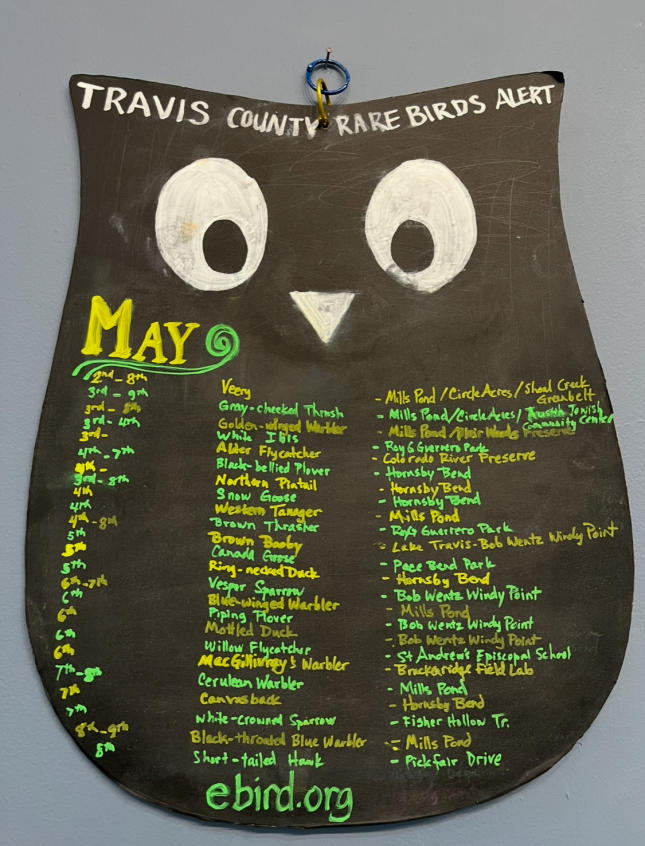 TRAVIS COUNTY RARE BIRDS ALERT
MAY
2nd-8th Veery - Mills Pond/Circle Acres/Shoal Creek Greenbelt
3rd-9th Gray-cheeked Thrush - Mills Pond/Circle Acres/Austin Jewish Community Center
3rd-8th Golden-winged Warbler - Mills Pond/Blair Woods Preserve
3rd-4th White Ibis - Roy G Guerrero Park
3rd- Alder Flycatcher - Colorado River Preserve
4th-7th Black-bellied Plover - Hornsby Bend
4th- Northern Pintail - Hornsby Bend
3rd-8th Snow Goose - Hornsby Bend
4th Western Tanager - Mills Pond
4th Brown Thrasher - Roy G Guerrero Park
4th-8th Brown Booby - Lake Travis-Bob Wentz Windy Point
5th Canada Goose - Pace Bend Park
5th Ring-necked Duck - Hornsby Bend
5th Vesper Sparrow - Bob Wentz Windy Point
6th-7th Blue-winged Warbler - Mills Pond
6th Piping Plover - Bob Wentz Windy Point
6th Mottled Duck - Bob Wentz Windy Point
6th Willow Flycatcher - St Andrew's Episcopal School
6th MacGillivray's Warbler - Brackenridge Field Lab
7th-8th Cerulean Warbler - Mills Pond
7th Canvasback - Hornsby Bend
7th White-crowned Sparrow - Fisher Hollow Tr.
8th-9th Black-throated Blue Warbler - Mills Pond
8th Short-tailed Hawk - Pickfair Drive
ebird.org